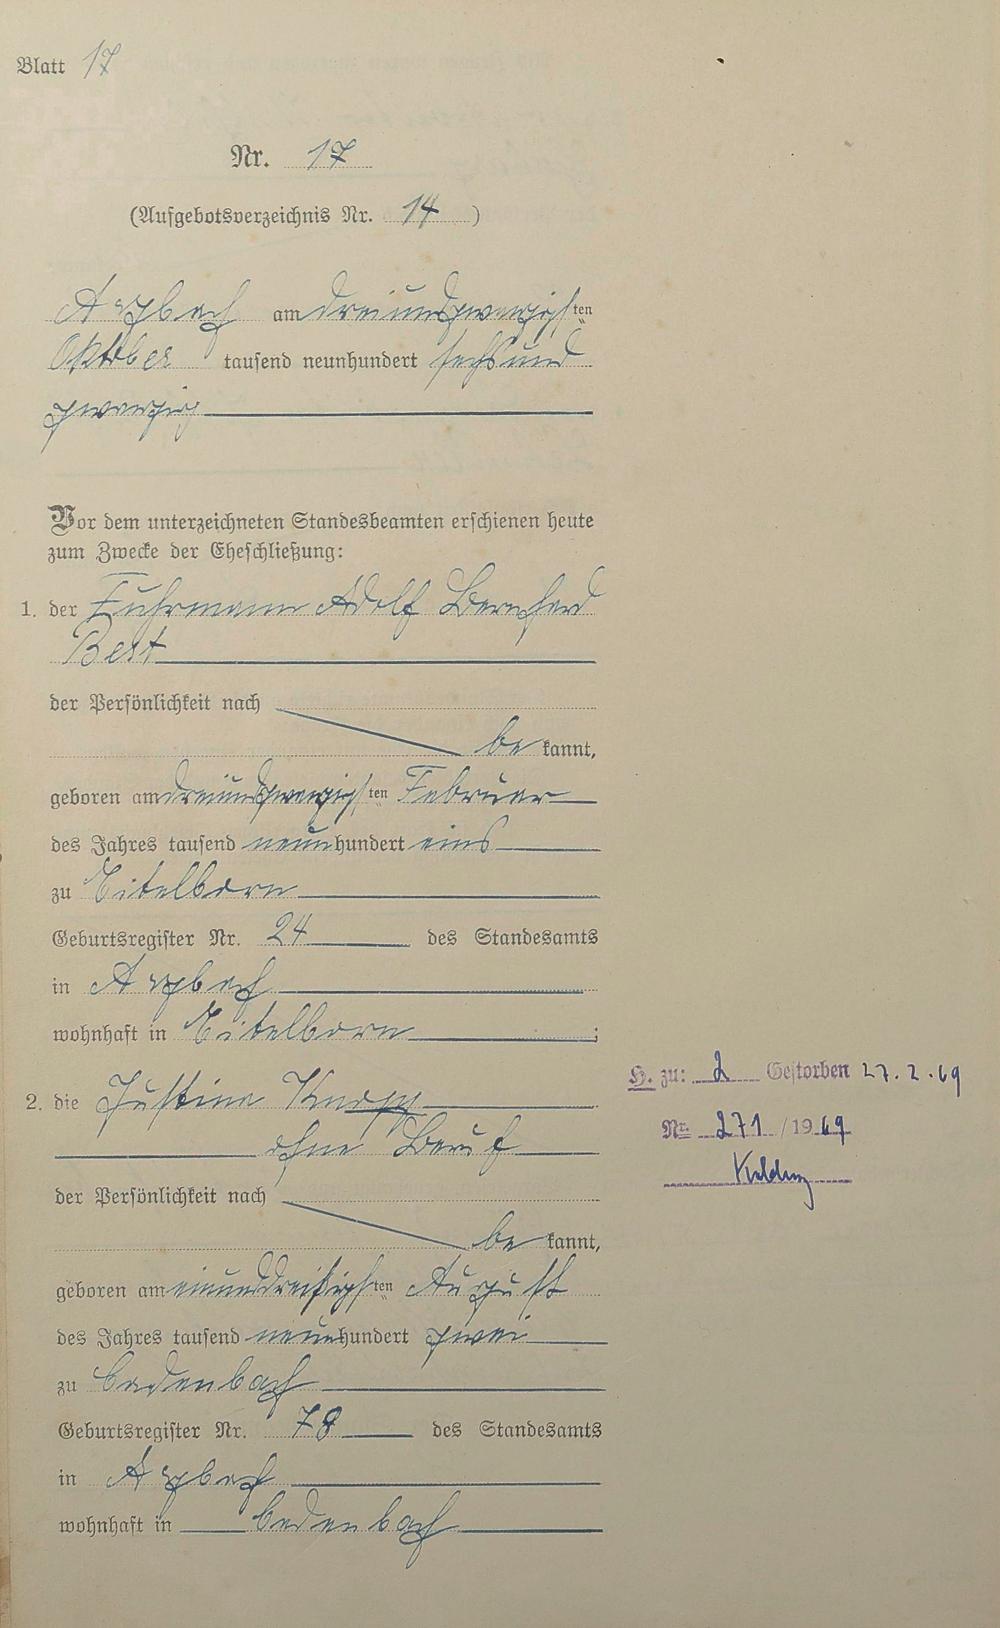 Blatt 17
Nr. 17
(Aufgebotsverzeichnis Nr. 14)
Arzbach am dreiundzwanzigsten
Oktober tausend neunhundert sechsund
zwanzig
Vor dem unterzeichneten Standesbeamten erschienen heute
zum Zwecke der Eheschließung:
1. der Fuhrmann Adolf Bernhard
Best
der Persönlichkeit nach
be kannt,
geboren am dreiundzwanzigsten Februar
des Jahres tausend neunhundert eins
zu Eitelborn
Geburtsregister Nr. 24 des Standesamts
in Arzbach
wohnhaft in Eitelborn;
2. die Justina Knopp
ohne Beruf
der Persönlichkeit nach
be kannt,
geboren am einunddreißigsten August
des Jahres tausend neunhundert zwei
zu Cadenbach
Geburtsregister Nr. 78 des Standesamts
in Arzbach
wohnhaft in Cadenbach
H. zu: 2 Gestorben 27.2.69
Nr. 271/1969